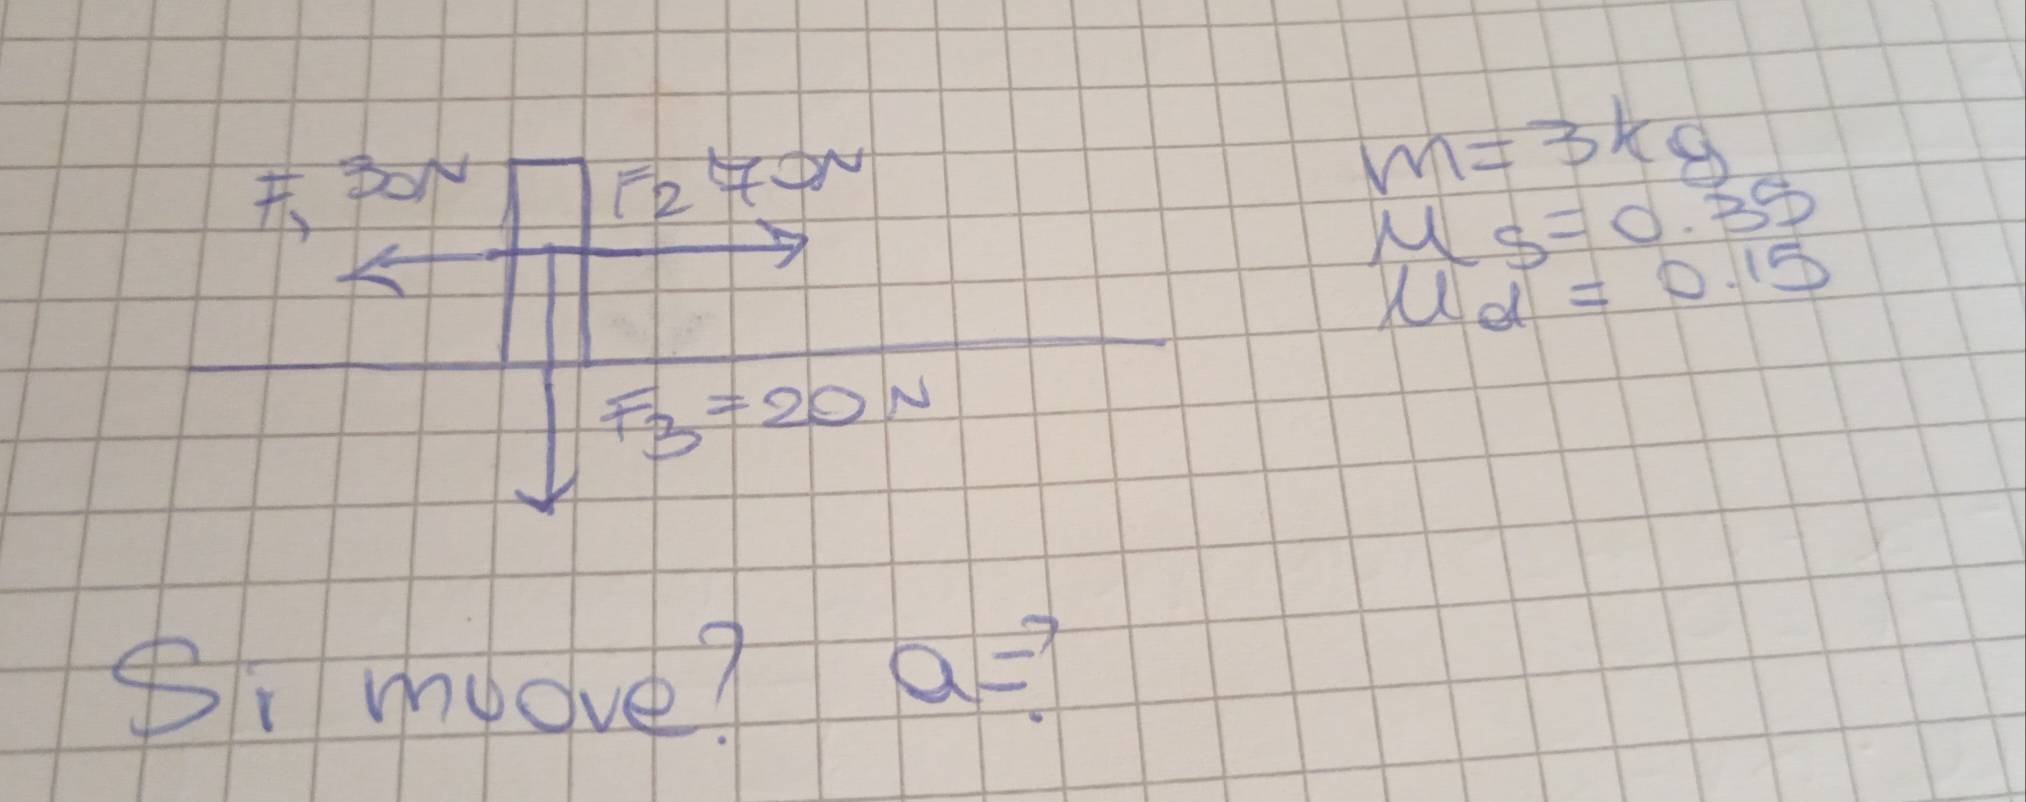 F₁ 30N F₂ 70N
F₃ = 20N
m = 3kg
μs = 0.35
μd = 0.15
Si muove? a=?